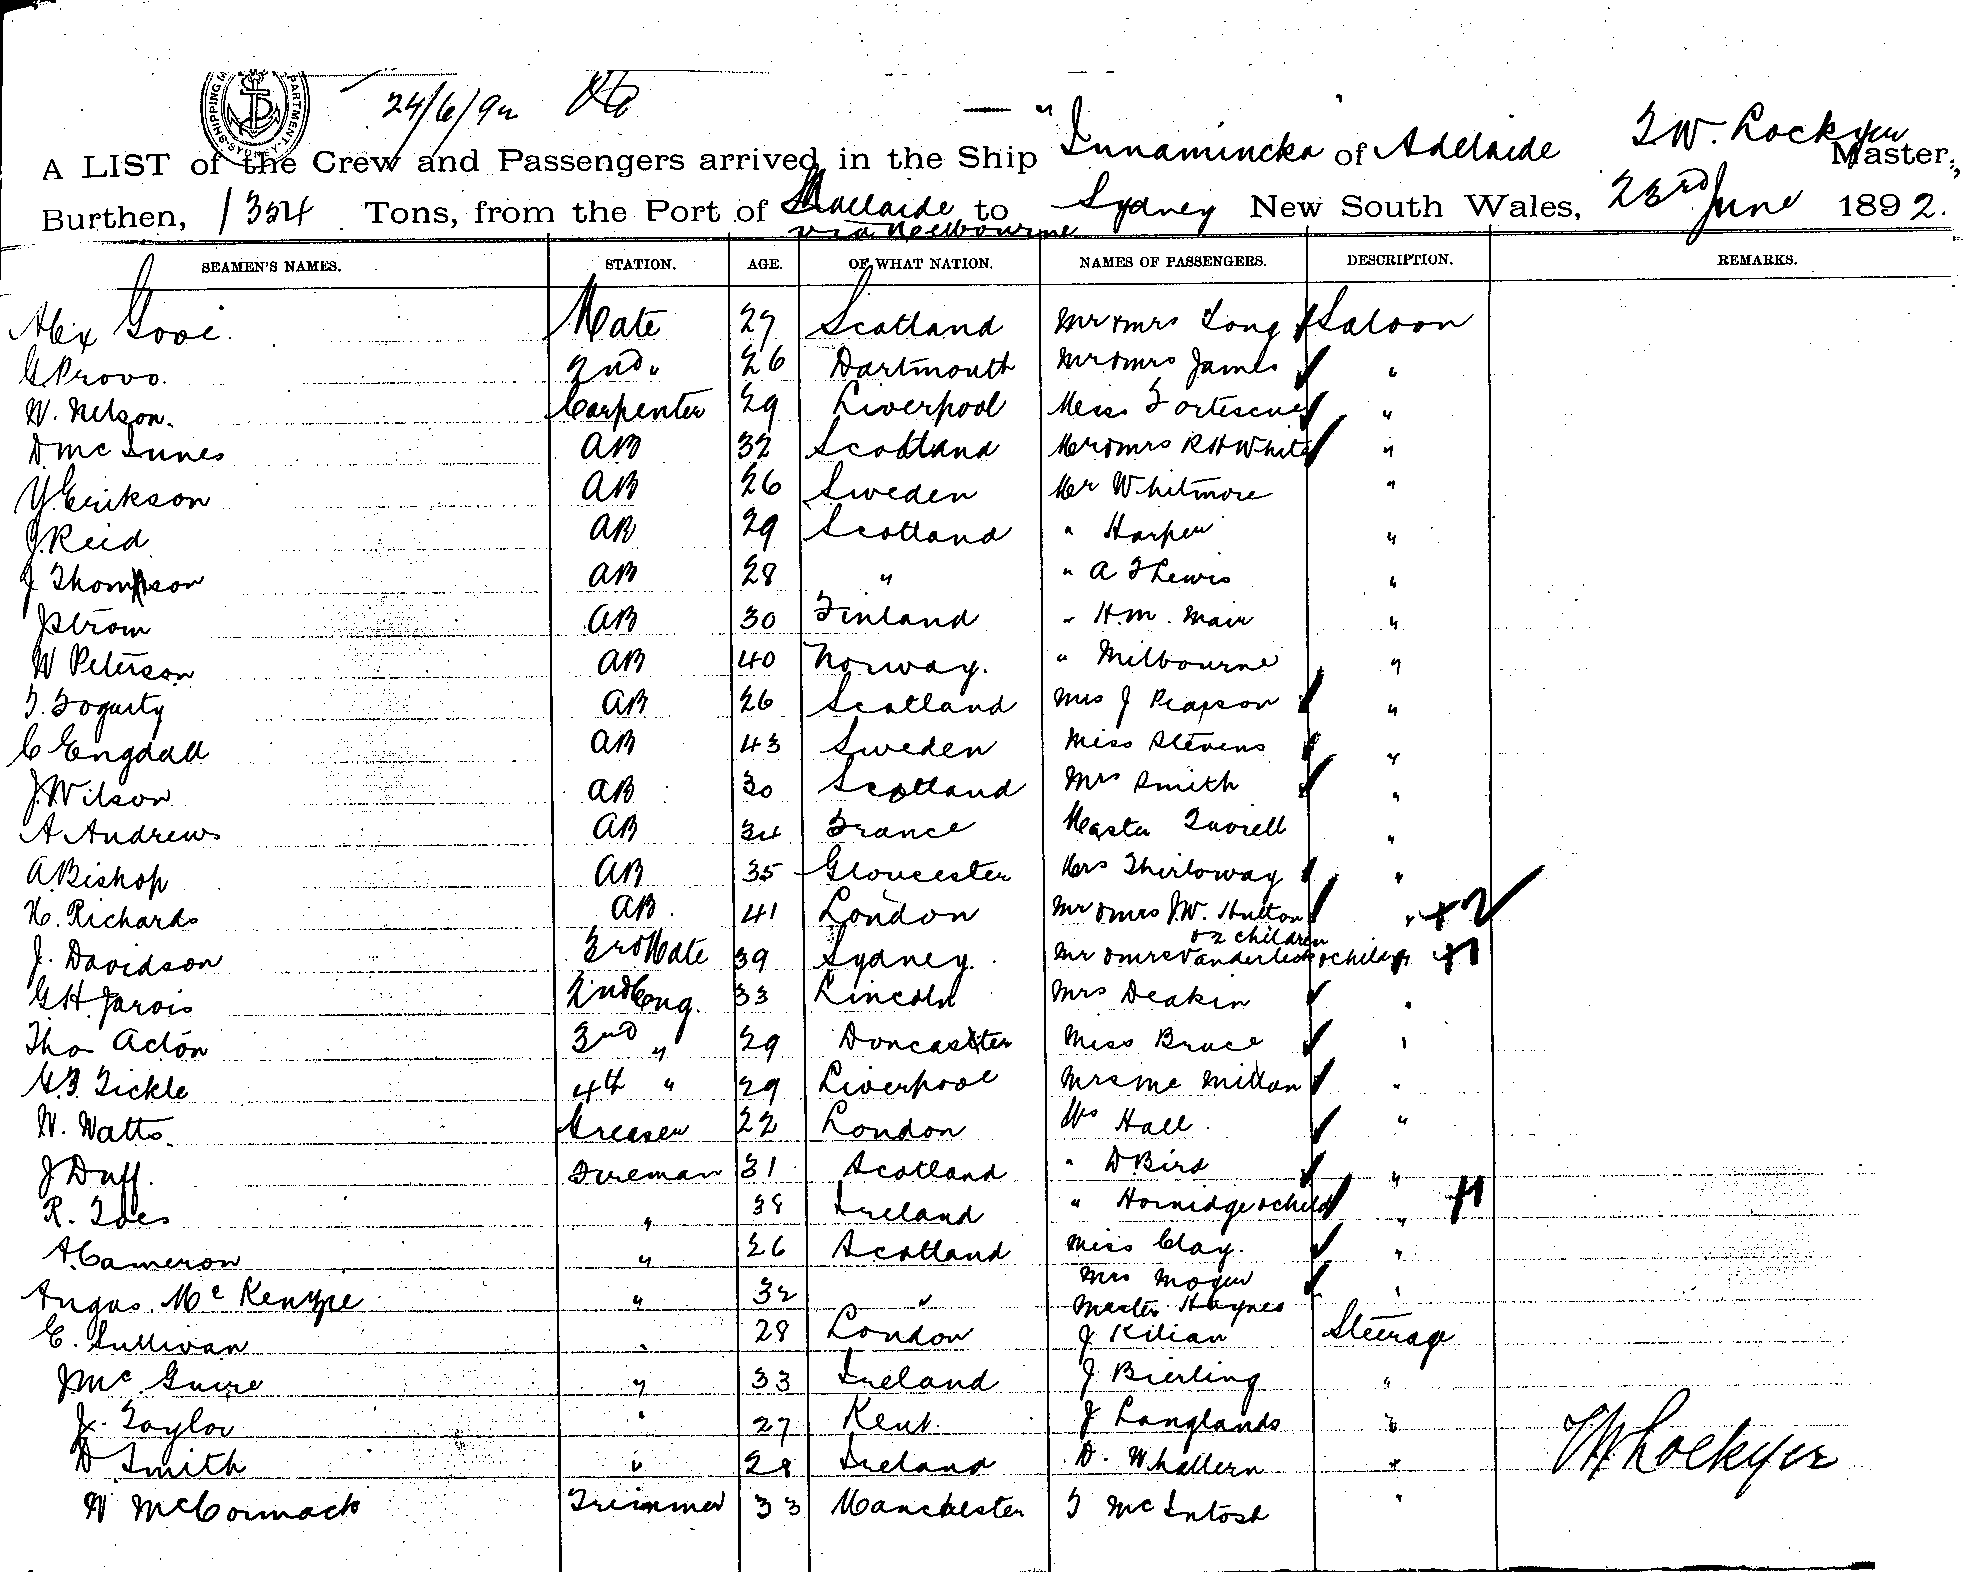 24/6/92
A LIST of the Crew and Passengers arrived in the Ship "Innamincka" of Adelaide T W. Lockyer Master,
Burthen, 1354 Tons, from the Port of Adelaide via Melbourne to Sydney New South Wales, 23rd June 1892.
SEAMEN'S NAMES. STATION. AGE. OF WHAT NATION. NAMES OF PASSENGERS. DESCRIPTION. REMARKS.
Alex Mate 27 Scotland Mr & Mrs Long Saloon
G Provo. 2nd " 26 Dartmouth Mr & Mrs James "
W. Nelson. Carpenter 29 Liverpool Miss Fortescue "
D. McInnes AB 32 Scotland Mr & Mrs R H White "
Y. Erikson AB 26 Sweden Mr Whitmore "
J. Reid AB 29 Scotland " Harper "
J Thompson AB 28 " " A F Lewis "
J Strom AB 30 Finland " H. M. Mair "
W Peterson AB 40 Norway. " Milbourne "
T. Fogarty AB 26 Scotland Mrs J Pearson "
C Engdall AB 43 Sweden Miss Stevens "
J. Wilson AB 30 Scotland Mrs Smith "
A Andrews AB 34 France Master "
A Bishop AB 35 Gloucester Mrs Thirloway "
H. Richards AB. 41 London Mr & Mrs J. W. Hutton & 2 children " + 2
J. Davidson 3rd Mate 39 Sydney. Mr & Mrs & child " + 1
G. H. Jarvis 2nd Eng. 33 Lincoln Mrs Deakin "
Tho Acton 3rd " 29 Doncaster Miss Bruce "
G. F. Tickle 4th " 29 Liverpool Mrs McMillan "
W. Watts. Greaser 22 London Mrs Hall. "
J Duff. Fireman 31 Scotland " D Bird "
R. " 38 Ireland " Hornidge & child " + 1
A. Cameron " 26 Scotland Miss Clay. "
Angus McKenzie " 32 " Mrs Moger "
Master Haynes
E. Sullivan " 28 London J Kilian Steerage
J McGuire " 33 Ireland J Bierling "
J. Taylor " 27 Kent. J Langlands "
D Smith " 28 Ireland D. Whallern "
W McCormack Trimmer 33 Manchester T McIntosh "
T W Lockyer